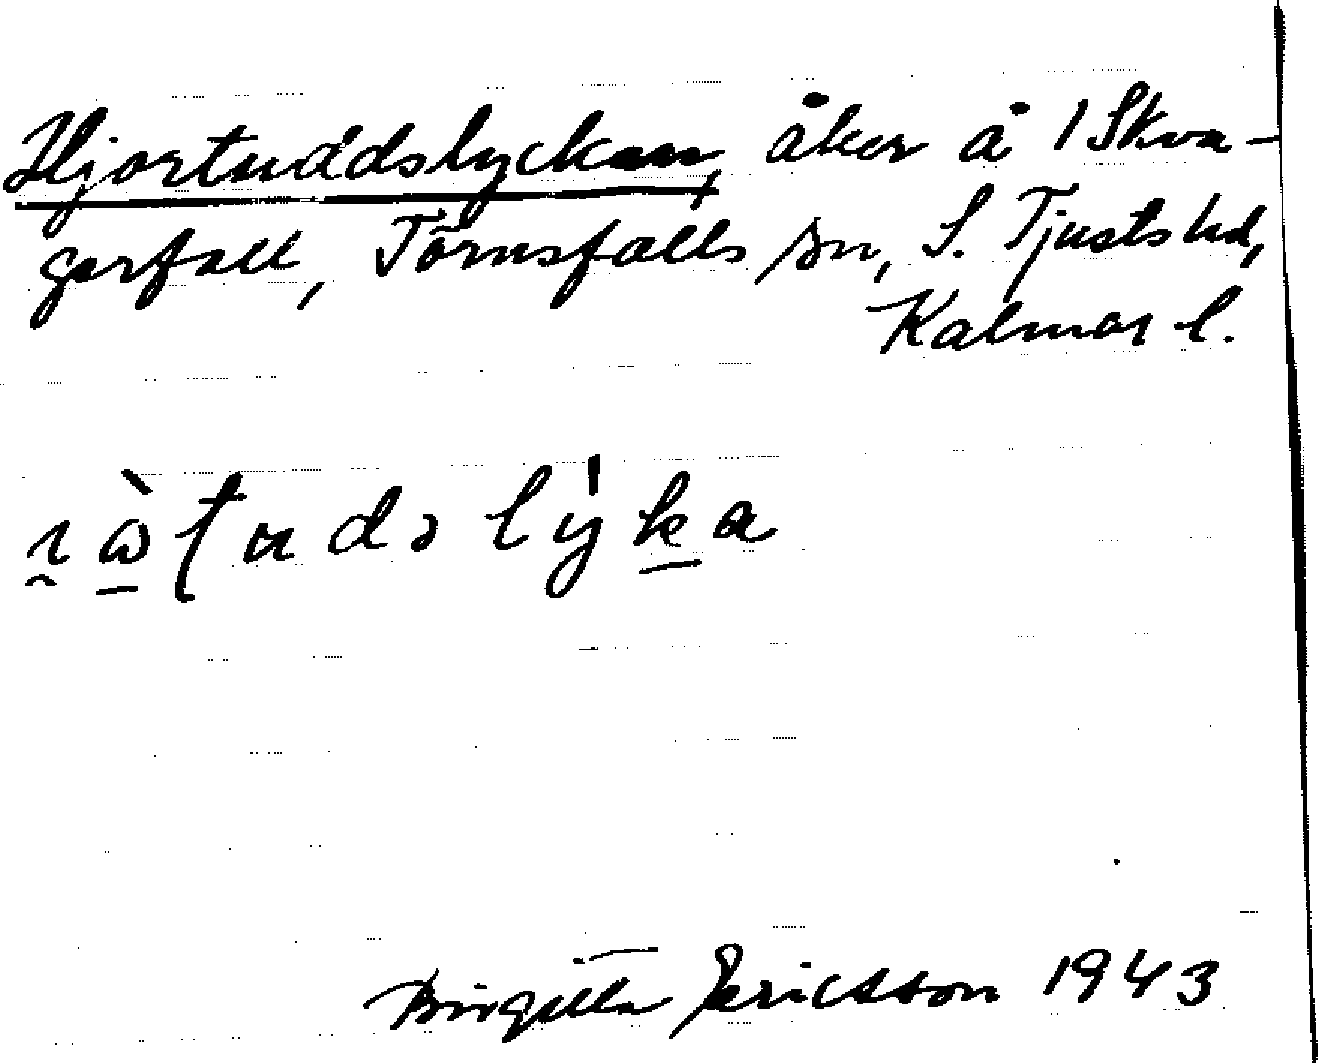 Hjortuddslyckan, åker å 1 Skva-
gerfall, Törnsfalls sn, S. Tjusts hd,
Kalmar l.
Birgitta Ericsson 1943